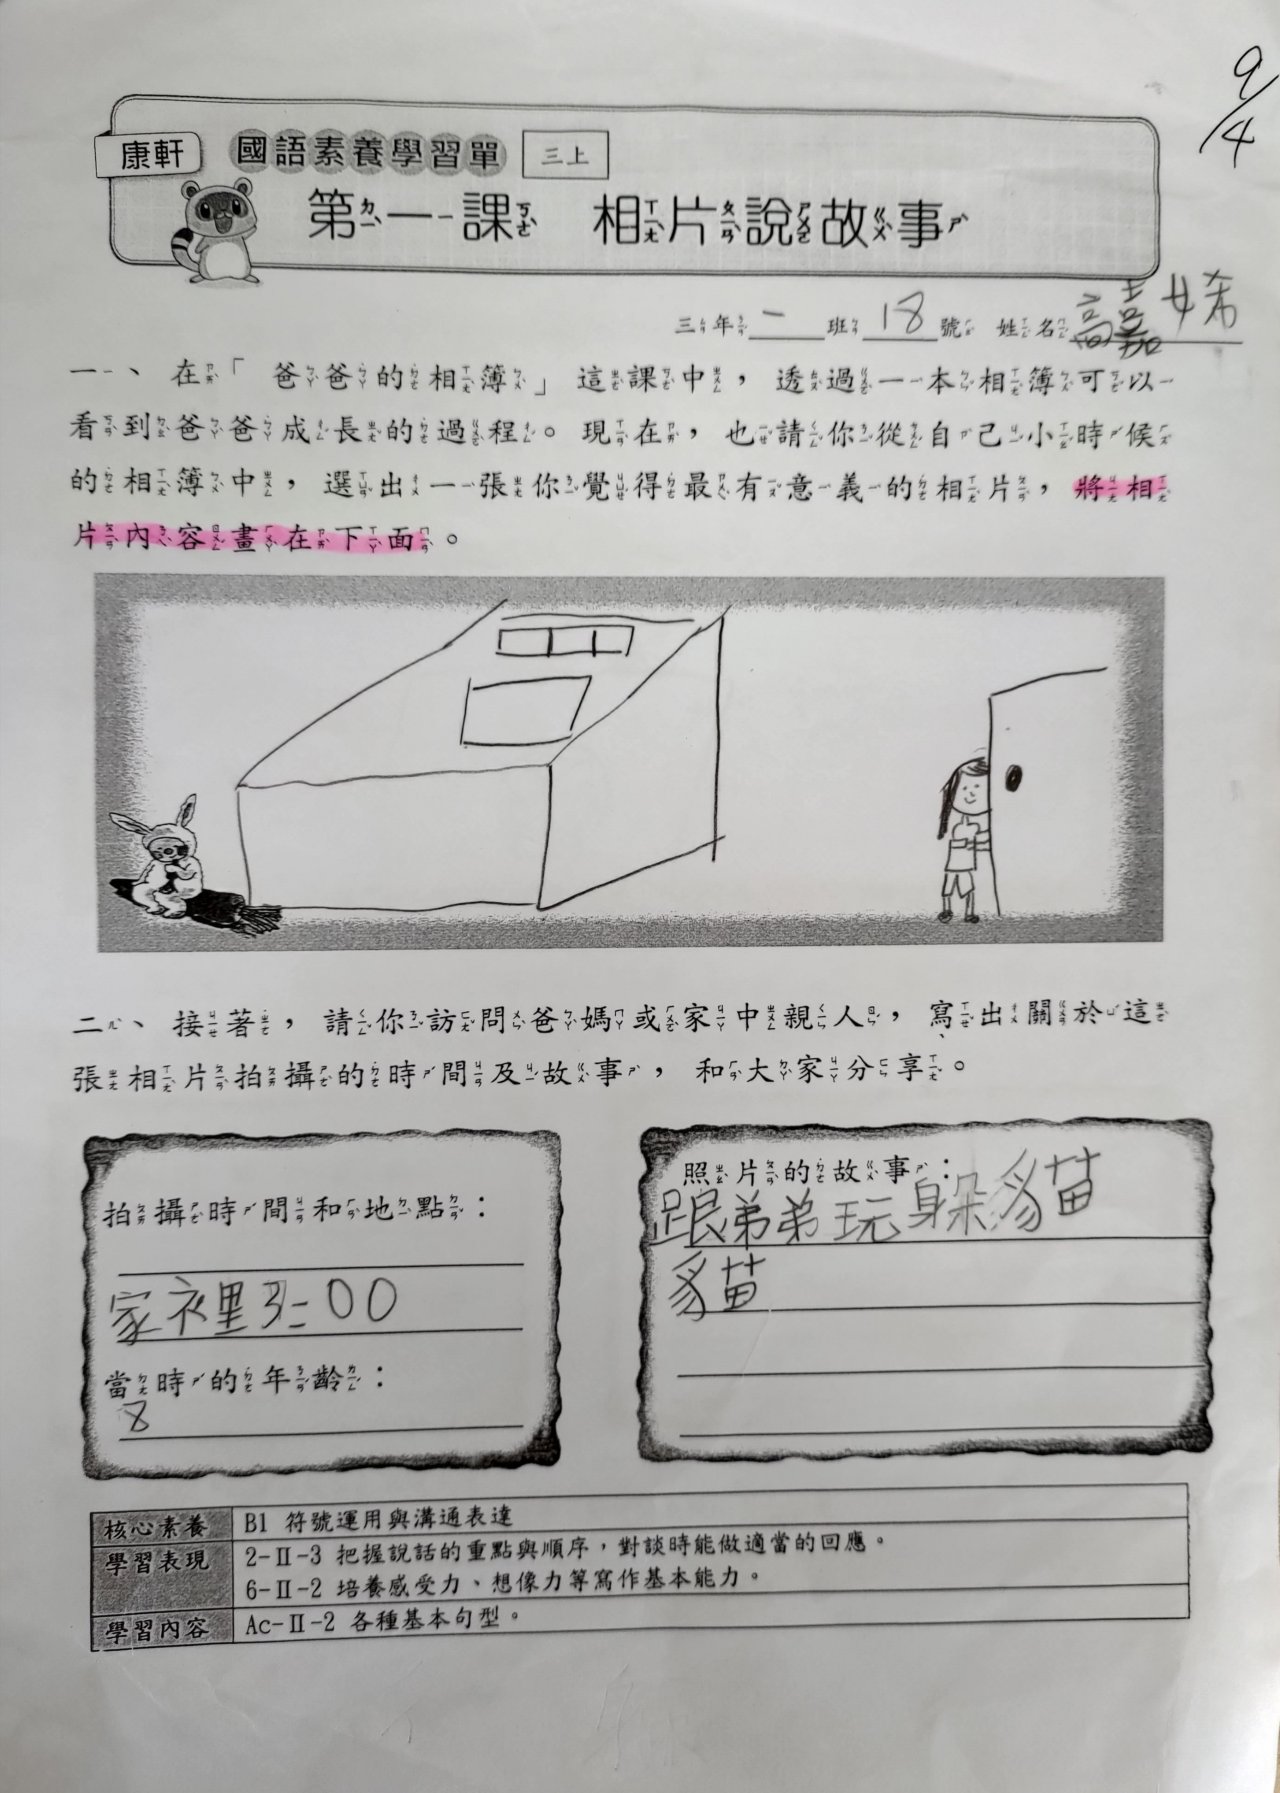 9/4
康軒 國語素養學習單 三上
第一課 相片說故事
三年一班18號 姓名高嘉烯
一、在「爸爸的相簿」這課中，透過一本相簿可以
看到爸爸成長的過程。現在，也請你從自己小時候
的相簿中，選出一張你覺得最有意義的相片，將相
片內容畫在下面。
二、接著，請你訪問爸媽或家中親人，寫出關於這
張相片拍攝的時間及故事，和大家分享。
拍攝時間和地點：
家裡3:00
當時的年齡：
8
照片的故事：
跟弟弟玩躲貓
貓
核心素養 B1 符號運用與溝通表達
學習表現 2-Ⅱ-3 把握說話的重點與順序，對談時能做適當的回應。
6-Ⅱ-2 培養感受力、想像力等寫作基本能力。
學習內容 Ac-Ⅱ-2 各種基本句型。